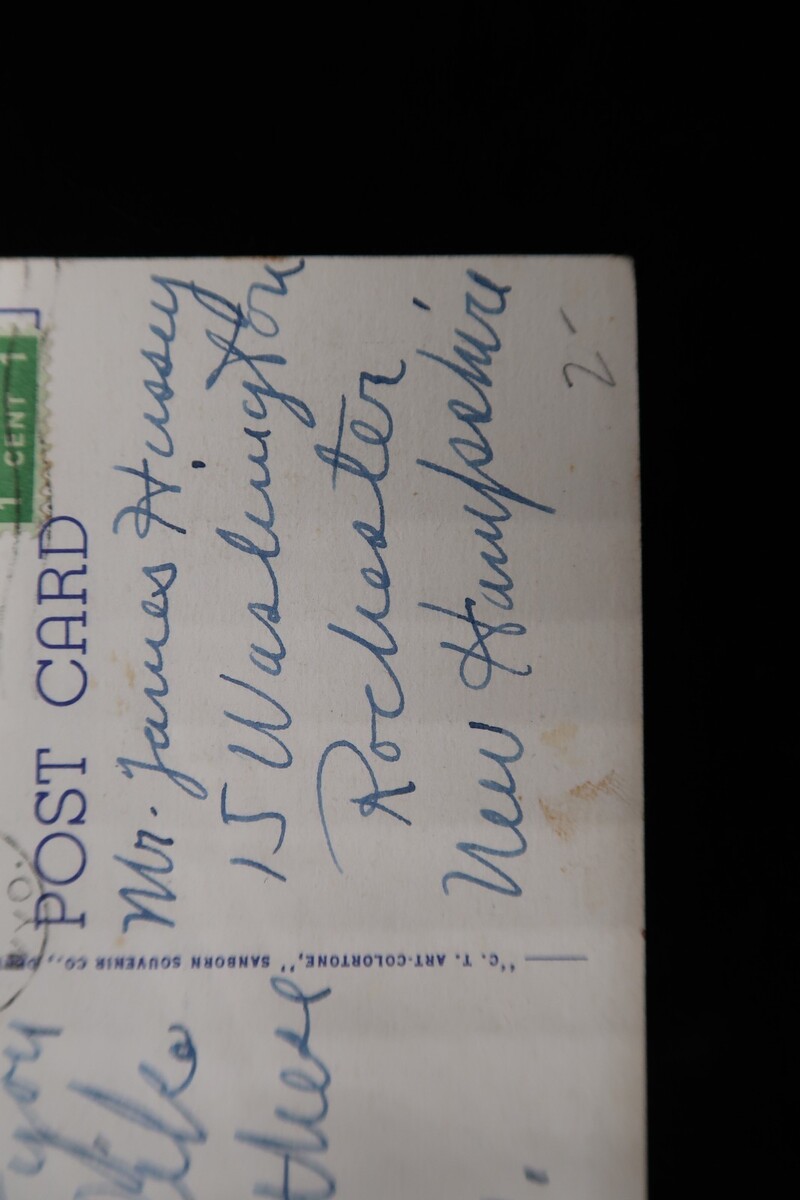 1 CENT 1
POST CARD
Mr. James Hussey
15 Washington
Rochester
New Hampshire
2-
"C. T. ART-COLORTONE," SANBORN SOUVENIR CO.,
YO.
you
like
these